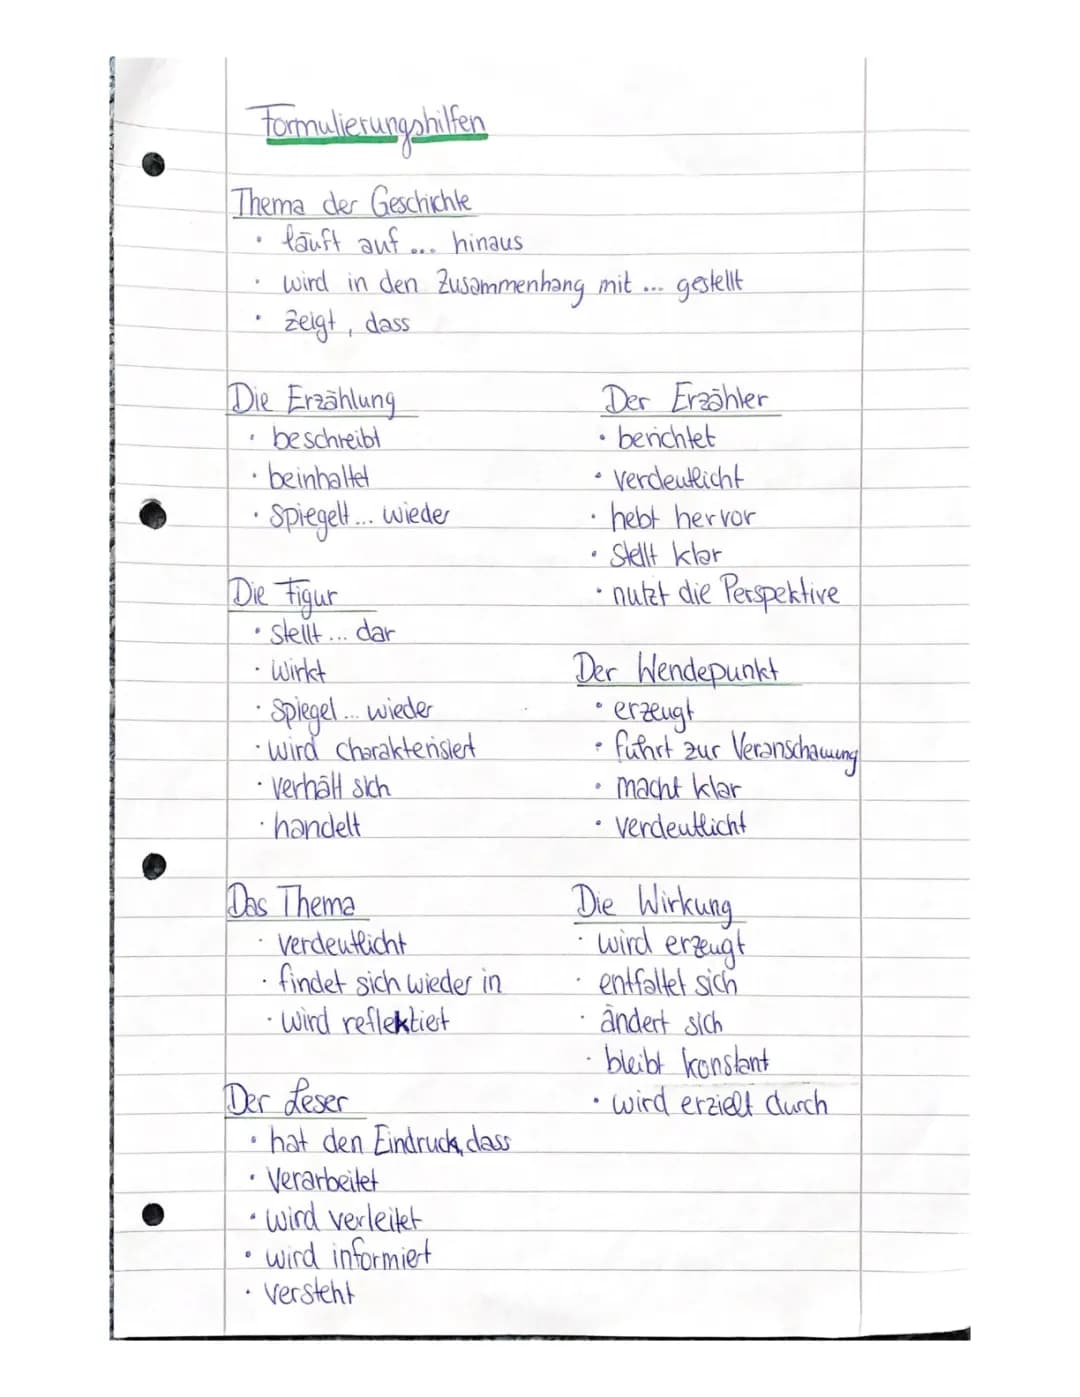 Formulierungshilfen
Thema der Geschichte
• läuft auf ... hinaus
• wird in den Zusammenhang mit ... gestellt
• zeigt, dass
Die Erzählung
• beschreibt
• beinhaltet
• Spiegelt ... wieder
Die Figur
• stellt ... dar
• wirkt
• Spiegel ... wieder
• wird charakterisiert
• verhält sich
• handelt
Das Thema
• verdeutlicht
• findet sich wieder in
• wird reflektiert
Der Leser
• hat den Eindruck, dass
• verarbeitet
• wird verleitet
• wird informiert
• versteht
Der Erzähler
• berichtet
• verdeutlicht
• hebt hervor
• stellt klar
• nutzt die Perspektive
Der Wendepunkt
• erzeugt
• führt zur Veranschauung
• macht klar
• verdeutlicht
Die Wirkung
• wird erzeugt
• entfaltet sich
• ändert sich
• bleibt konstant
• wird erzielt durch